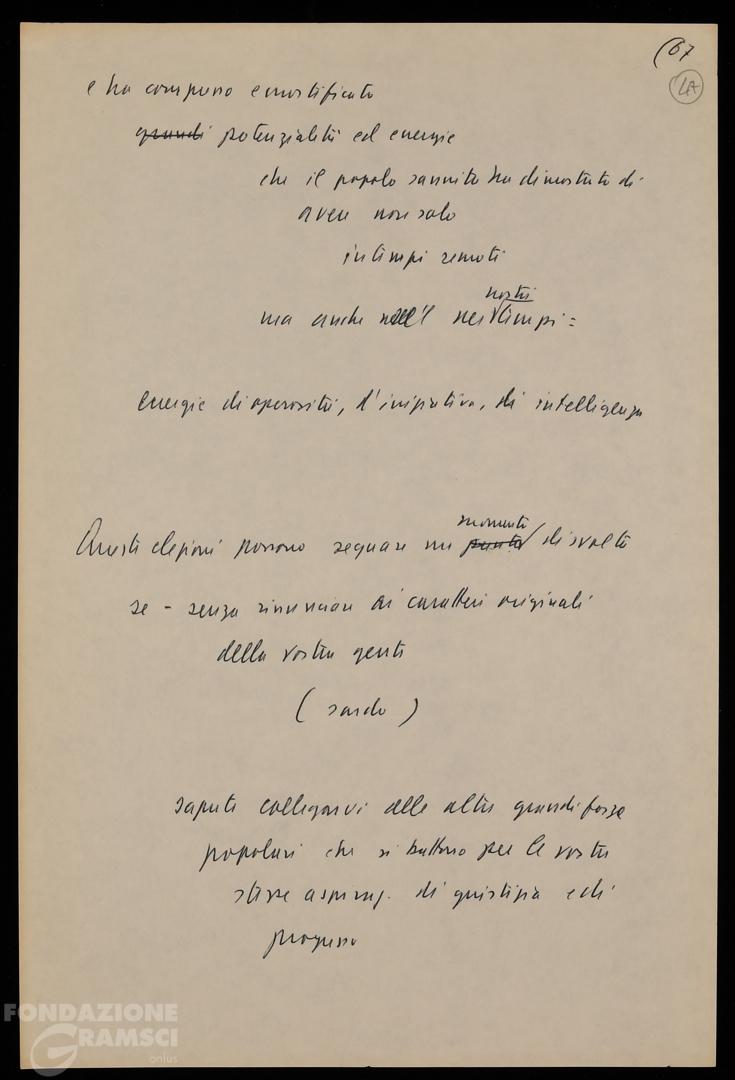 (67
4A
e ha compresso e mortificato
grandi potenzialità ed energie
che il popolo sannita ha dimostrato di
avere non solo
in tempi remoti
nostri
ma anche nei tempi:
energie di operosità, d'iniziativa, di intelligenza
momento
Queste elezioni possono segnare un punto di svolta
se - senza rinunciare ai caratteri originali
della vostra gente
(sardo)
sapute collegarvi alle altre grandi forze
popolari che si battono per le vostre
stesse aspiraz. di giustizia e di
progresso
FONDAZIONE
GRAMSCI
onlus